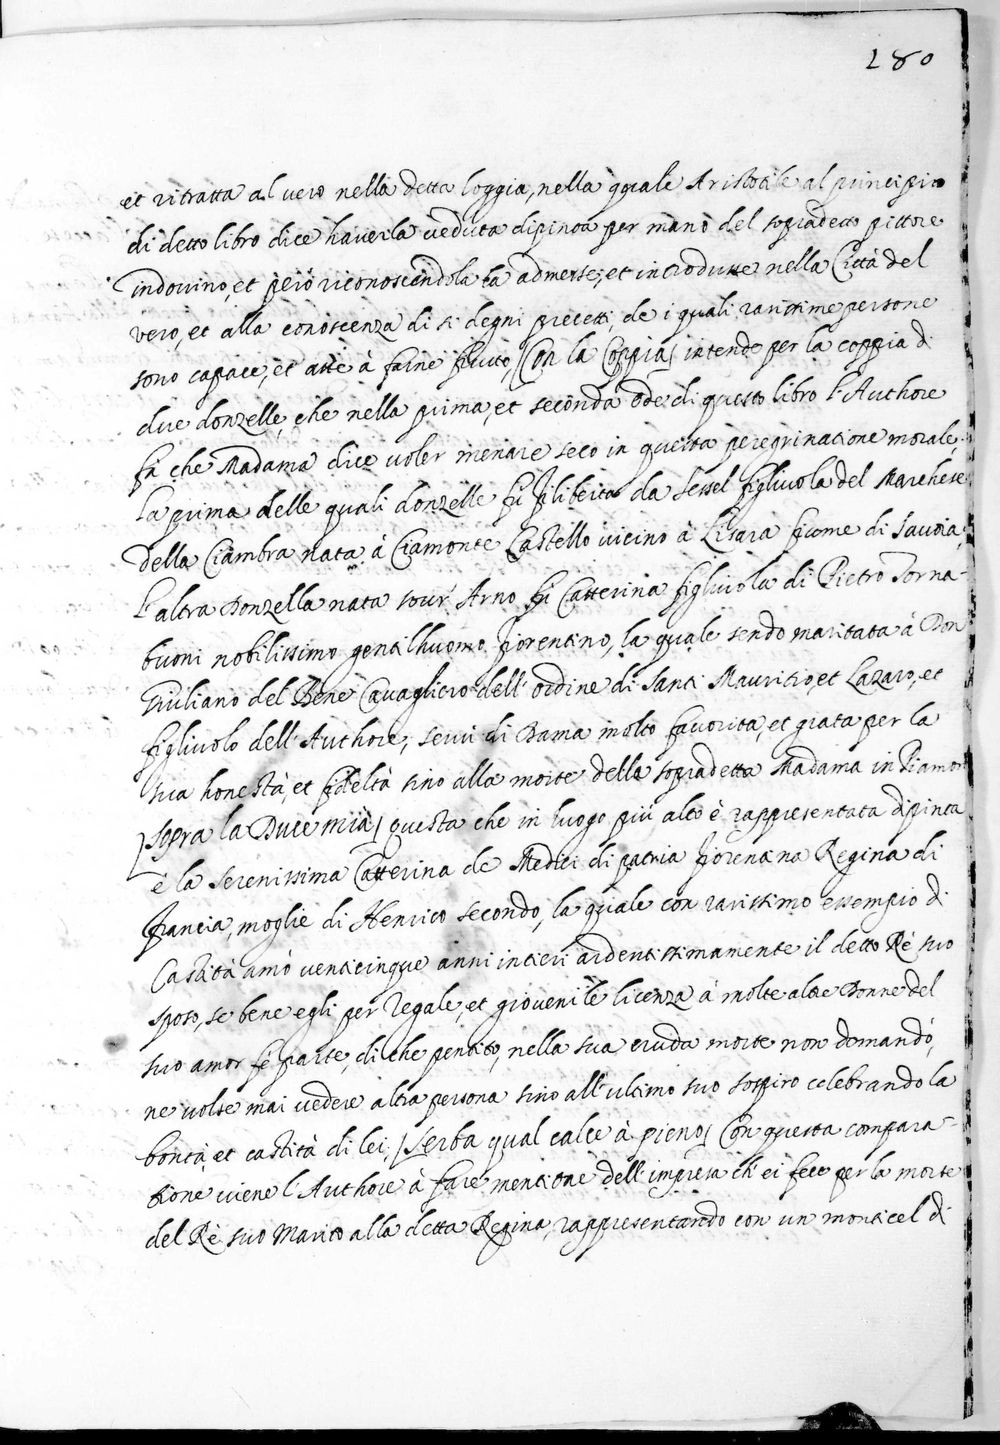 280
et ritratta al vero nella detta loggia, nella quale Aristotile al principio
di detto libro dice haverla veduta dipinta per mano del sopradetto pittore
indovino, et però riconoscendola la admesse, et introdusse nella Città del
vero, et alla conoscenza di si degni precetti, de i quali rarissime persone
sono capace, et atte à farne frutto, [Con la Coppia] intende per la coppia di
due donzelle, che nella prima, et seconda ode di questo libro l'Authore
fà che Madama dice voler menare seco in questa peregrinatione morale,
la prima delle quali donzelle fù Filiberta da Sessel figliuola del Marchese
della Ciambra nata à Ciamonte Castello vicino à Lisara fiume di Savoia,
L'altra Donzella nata sour' Arno fù Catterina figliuola di Pietro Torna-
buoni nobilissimo gentilhuomo fiorentino, la quale sendo maritata à Don
Giuliano del Bene Cavagliero dell' ordine di Santi Mauritio, et Lazaro, et
figliuolo dell' Authore, servi di Dama molto favorita, et grata per la
sua honestà, et fideltà sino alla morte della sopradetta Madama in Piamon
[sopra la Duce mia] questa che in luogo più alto è rappresentata dipinta
è la Serenissima Catterina de Medici di patria fiorentina Regina di
francia, moglie di Henrico secondo, la quale con rarissimo essempio di
Castità amò venticinque anni intieri ardentissimamente il detto Rè suo
sposo, se bene egli per regale, et giovenile licenza à molte altre Donne del
suo amor fè parte, di che pentito, nella sua cruda morte non domandò,
ne volse mai vedere altra persona sino all' ultimo suo sospiro celebrando la
bontà, et castità di lei, [Serba qual calce à pieno] Con questa compara-
tione viene l'Authore à fare mentione dell' impresa ch' ei fece per la morte
del Rè suo Marito alla detta Regina, rappresentando con un monticel di